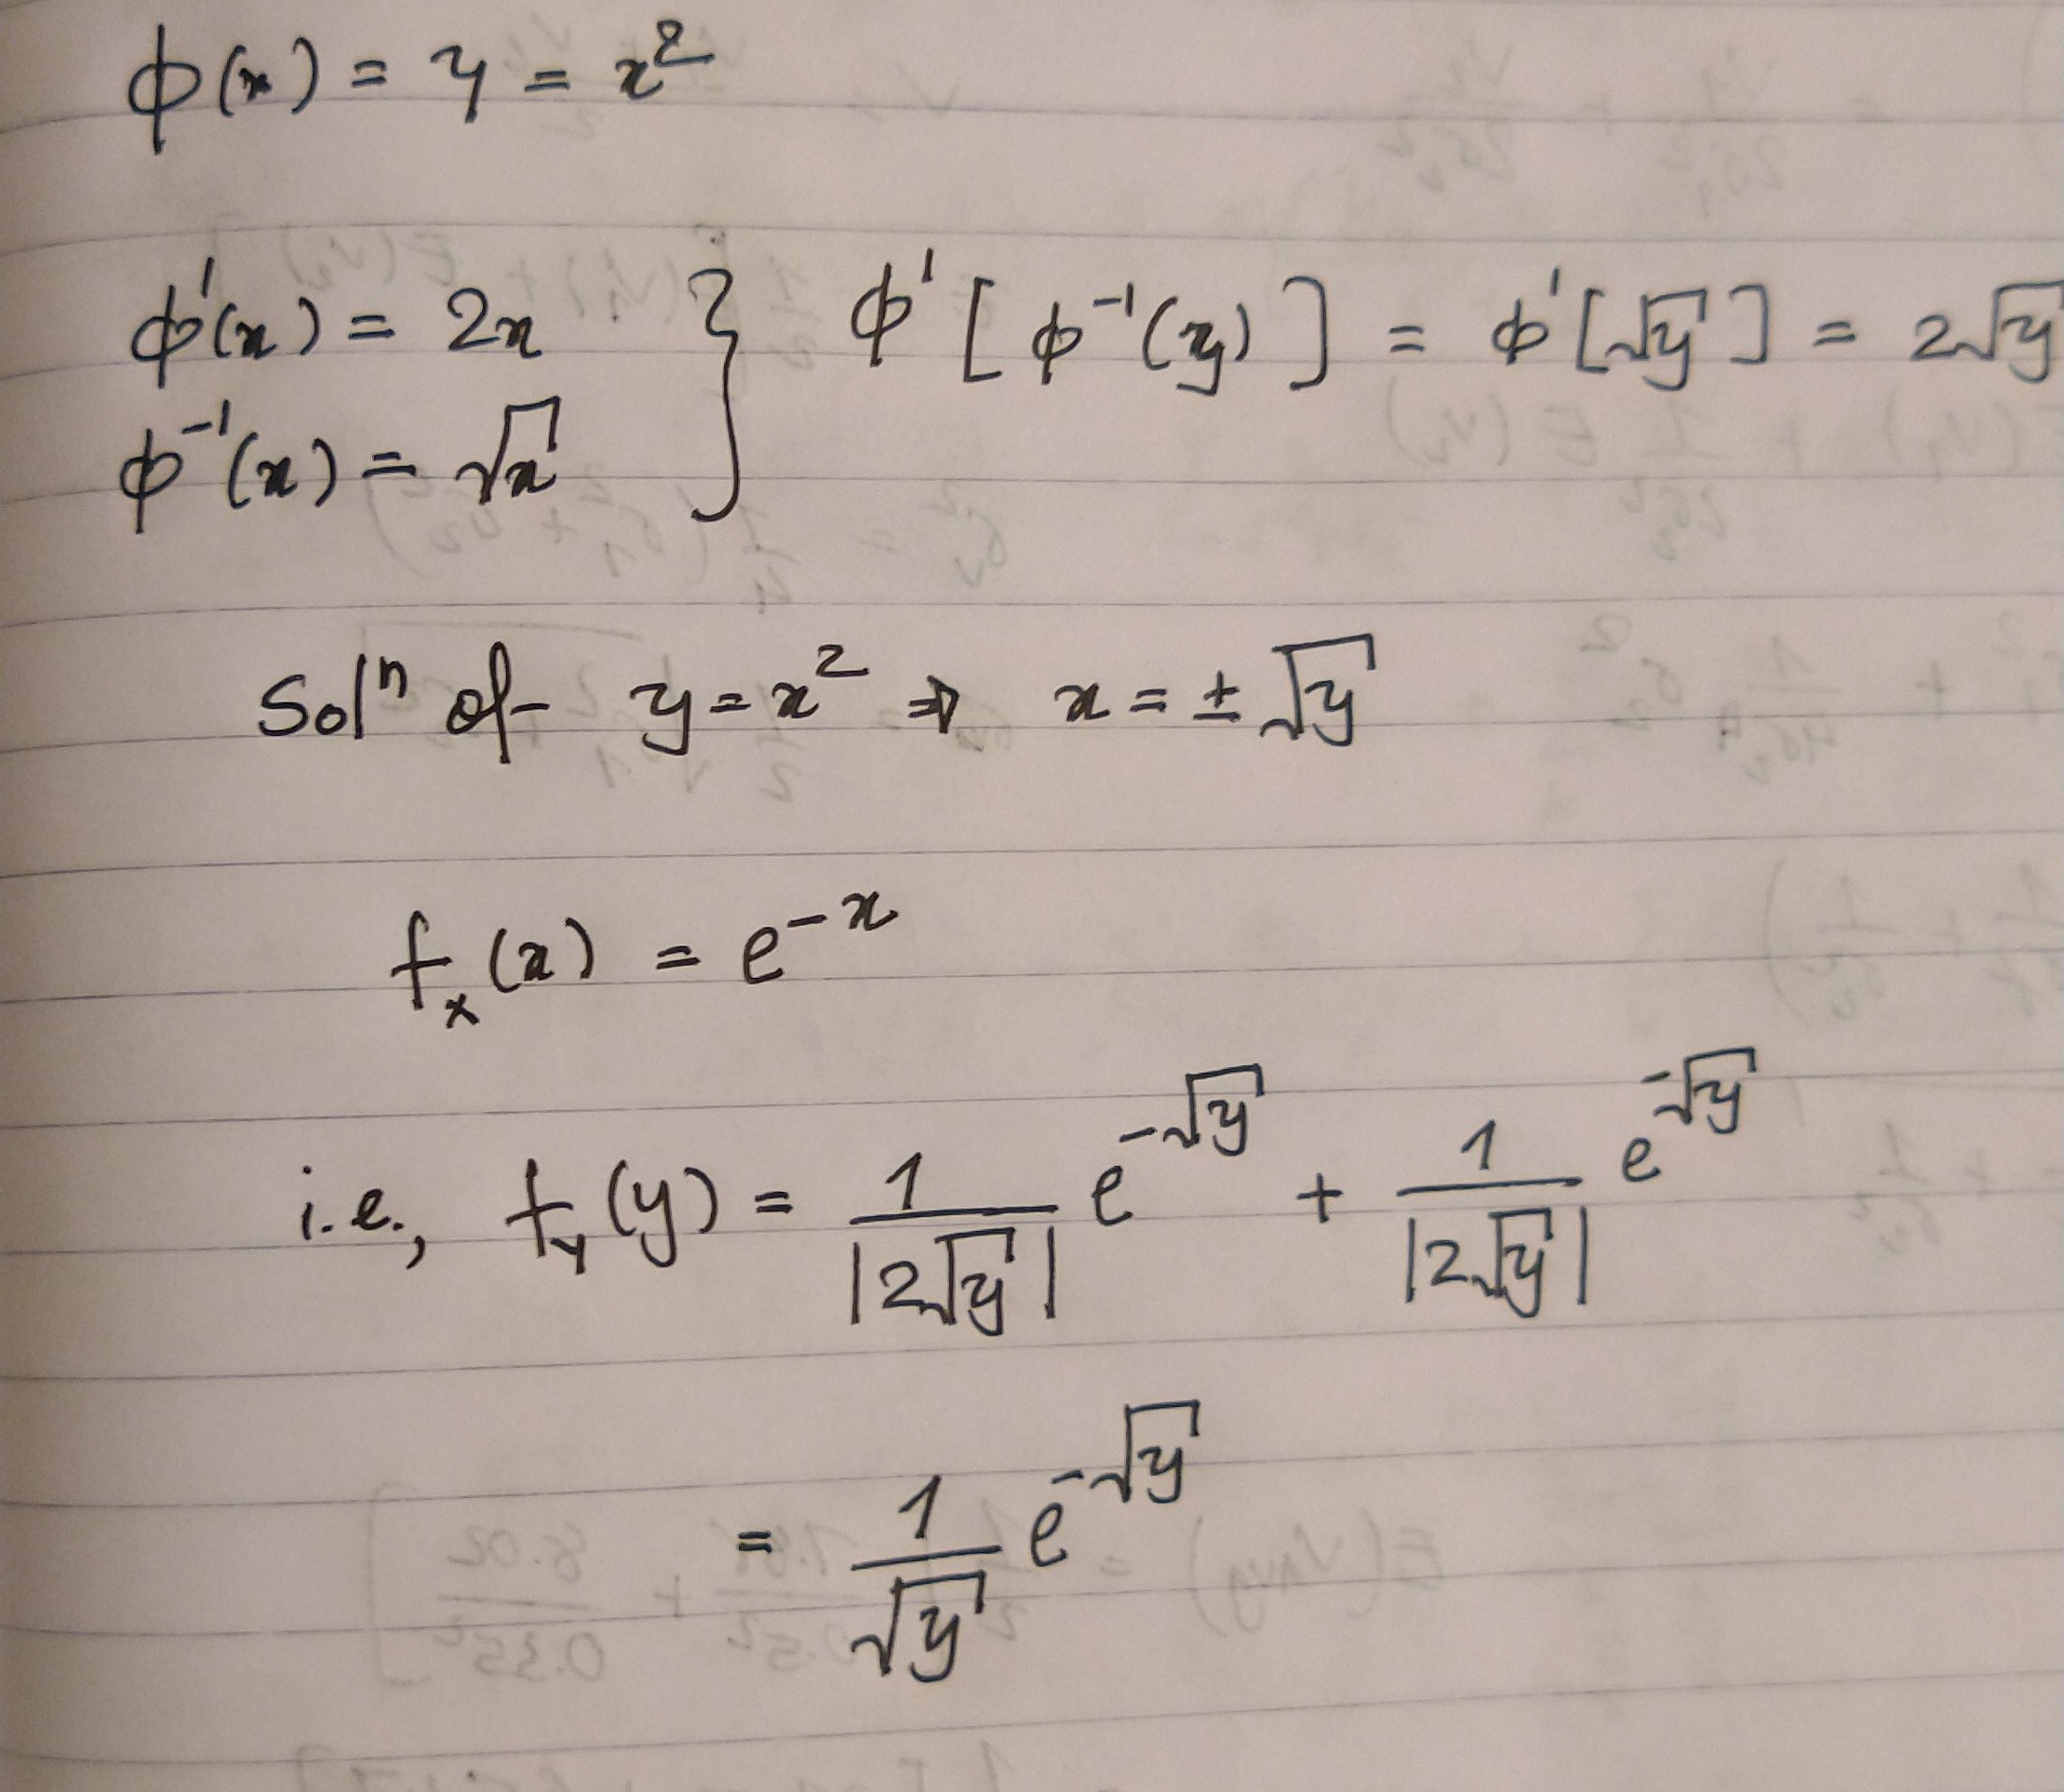 ϕ(x) = y = x²
ϕ'(x) = 2x } ϕ'[ϕ⁻¹(y)] = ϕ'[√y] = 2√y
ϕ⁻¹(x) = √x
Solⁿ of y = x² ⇒ x = ± √y
fₓ(x) = e^{-x}
i.e., f_Y(y) = 1/|2√y| e^{-√y} + 1/|2√y| e^{-√y}
= 1/√y e^{-√y}